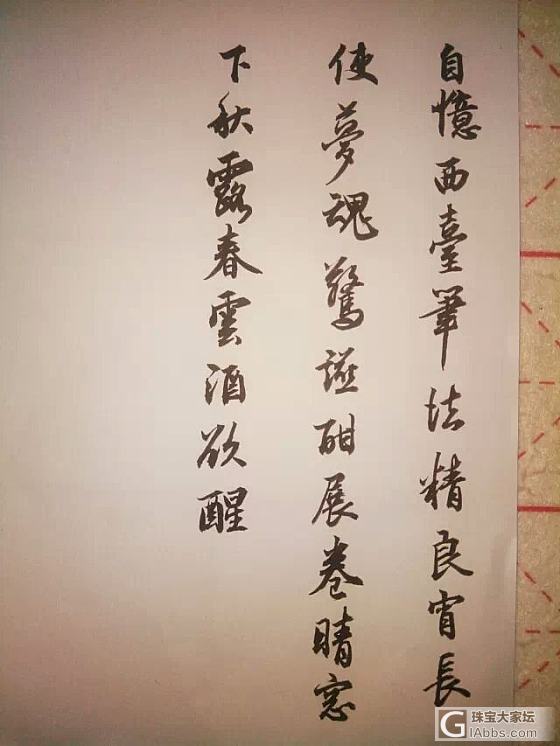 自憶西臺筆法精良宵長
使夢魂驚酣展卷晴窓
下秋露春雲酒欲醒
珠宝大家坛
GIAbbs.com